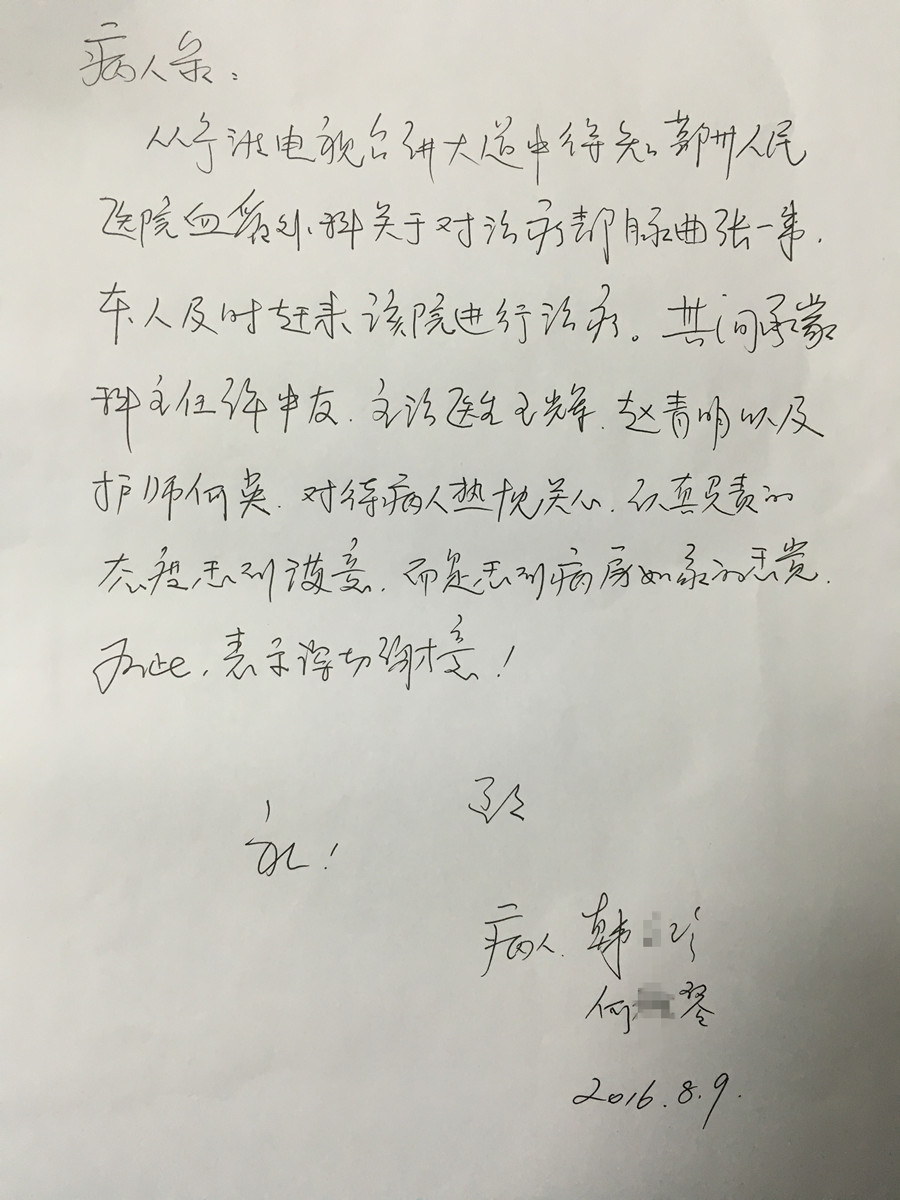 病人条：
从宁波电视台讲大道中得知鄞州人民
医院血管外科关于对治疗静脉曲张一事，
本人及时赶来该院进行治疗。其间承蒙
科主任徐中友、主治医生王辉、赵青明以及
护师何英，对待病人热忱关心，认真负责的
态度感到满意，而是感到病房如家的感觉。
为此，表示深切谢意！
致
礼！
病人 韩 珍
何 琴
2016.8.9.